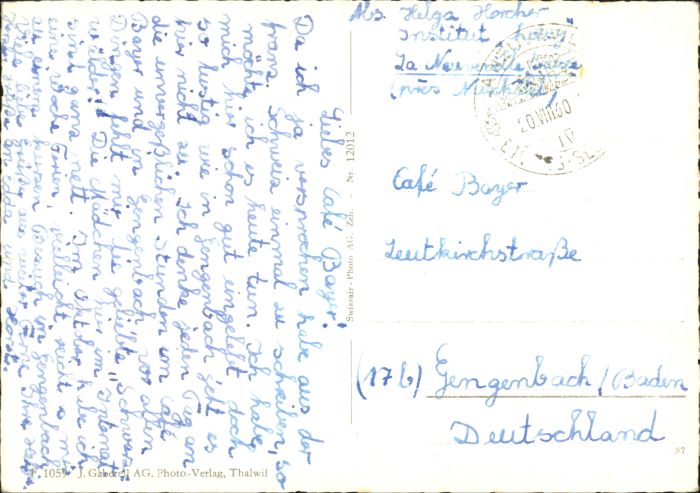 Abs. Helga Horcher
Institut
La Neuveville
(près
Café Bayer
Leutkirchstraße
(17b) Gengenbach/Baden
Deutschland
Liebes Café Bayer!
Da ich ja versprochen habe aus der
franz. Schweiz einmal zu schreiben, so
möchte ich es heute tun. Ich habe
mich hier schon gut eingelebt doch
so lustig wie in Gengenbach geht es
hier nicht zu. Ich denke jeden Tag an
die unvergeßlichen Stunden im Café
Bayer und in Gengenbach, vor allen
Dingen fehlt mir die geliebte "Schwarz-
wälder"! Die Mädchen hier im Internat
sind ganz nett. Im Oktober habe ich
eine Woche Ferien, vielleicht reicht es mir
zu einem kurzen Besuch in Gengenbach.
Viele liebe Grüße
Swissair-Photo AG. Zch. - Nr. 12012
1059 J. Gaberell AG. Photo-Verlag, Thalwil
57